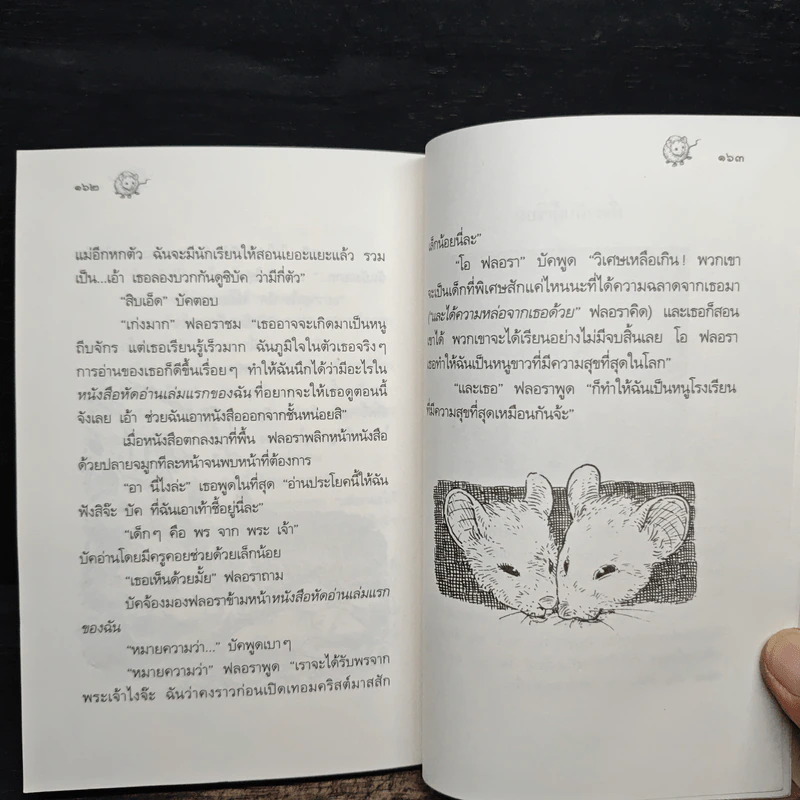 ๑๖๒
แม่อีกหกตัว ฉันจะมีนักเรียนให้สอนเยอะแยะแล้ว รวม
เป็น...เอ้า เธอลองบวกกันดูซิบัค ว่ามีกี่ตัว"
"สิบเอ็ด" บัคตอบ
"เก่งมาก" ฟลอราชม "เธออาจจะเกิดมาเป็นหนู
ถีบจักร แต่เธอเรียนรู้เร็วมาก ฉันภูมิใจในตัวเธอจริงๆ
การอ่านของเธอก็ดีขึ้นเรื่อยๆ ทำให้ฉันนึกได้ว่ามีอะไรใน
หนังสือหัดอ่านเล่มแรกของฉัน ที่อยากจะให้เธอดูตอนนี้
จังเลย เอ้า ช่วยฉันเอาหนังสือออกจากชั้นหน่อยสิ"
เมื่อหนังสือตกลงมาที่พื้น ฟลอราพลิกหน้าหนังสือ
ด้วยปลายจมูกทีละหน้าจนพบหน้าที่ต้องการ
"อา นี่ไงล่ะ" เธอพูดในที่สุด "อ่านประโยคนี้ให้ฉัน
ฟังสิจ๊ะ บัค ที่ฉันเอาเท้าชี้อยู่นี่ละ"
"เด็กๆ คือ พร จาก พระ เจ้า"
บัคอ่านโดยมีครูคอยช่วยด้วยเล็กน้อย
"เธอเห็นด้วยมั้ย" ฟลอราถาม
บัคจ้องมองฟลอราข้ามหน้าหนังสือหัดอ่านเล่มแรก
ของฉัน
"หมายความว่า..." บัคพูดเบาๆ
"หมายความว่า" ฟลอราพูด "เราจะได้รับพรจาก
พระเจ้าไงจ๊ะ ฉันว่าคงราวก่อนเปิดเทอมคริสต์มาสสัก
๑๖๓
เล็กน้อยนี่ละ"
"โอ ฟลอรา" บัคพูด "วิเศษเหลือเกิน! พวกเขา
จะเป็นเด็กที่พิเศษสักแค่ไหนนะที่ได้ความฉลาดจากเธอมา
("และได้ความหล่อจากเธอด้วย" ฟลอราคิด) และเธอก็สอน
เขาได้ พวกเขาจะได้เรียนอย่างไม่มีจบสิ้นเลย โอ ฟลอรา
เธอทำให้ฉันเป็นหนูขาวที่มีความสุขที่สุดในโลก"
"และเธอ" ฟลอราพูด "ก็ทำให้ฉันเป็นหนูโรงเรียน
ที่มีความสุขที่สุดเหมือนกันจ้ะ"